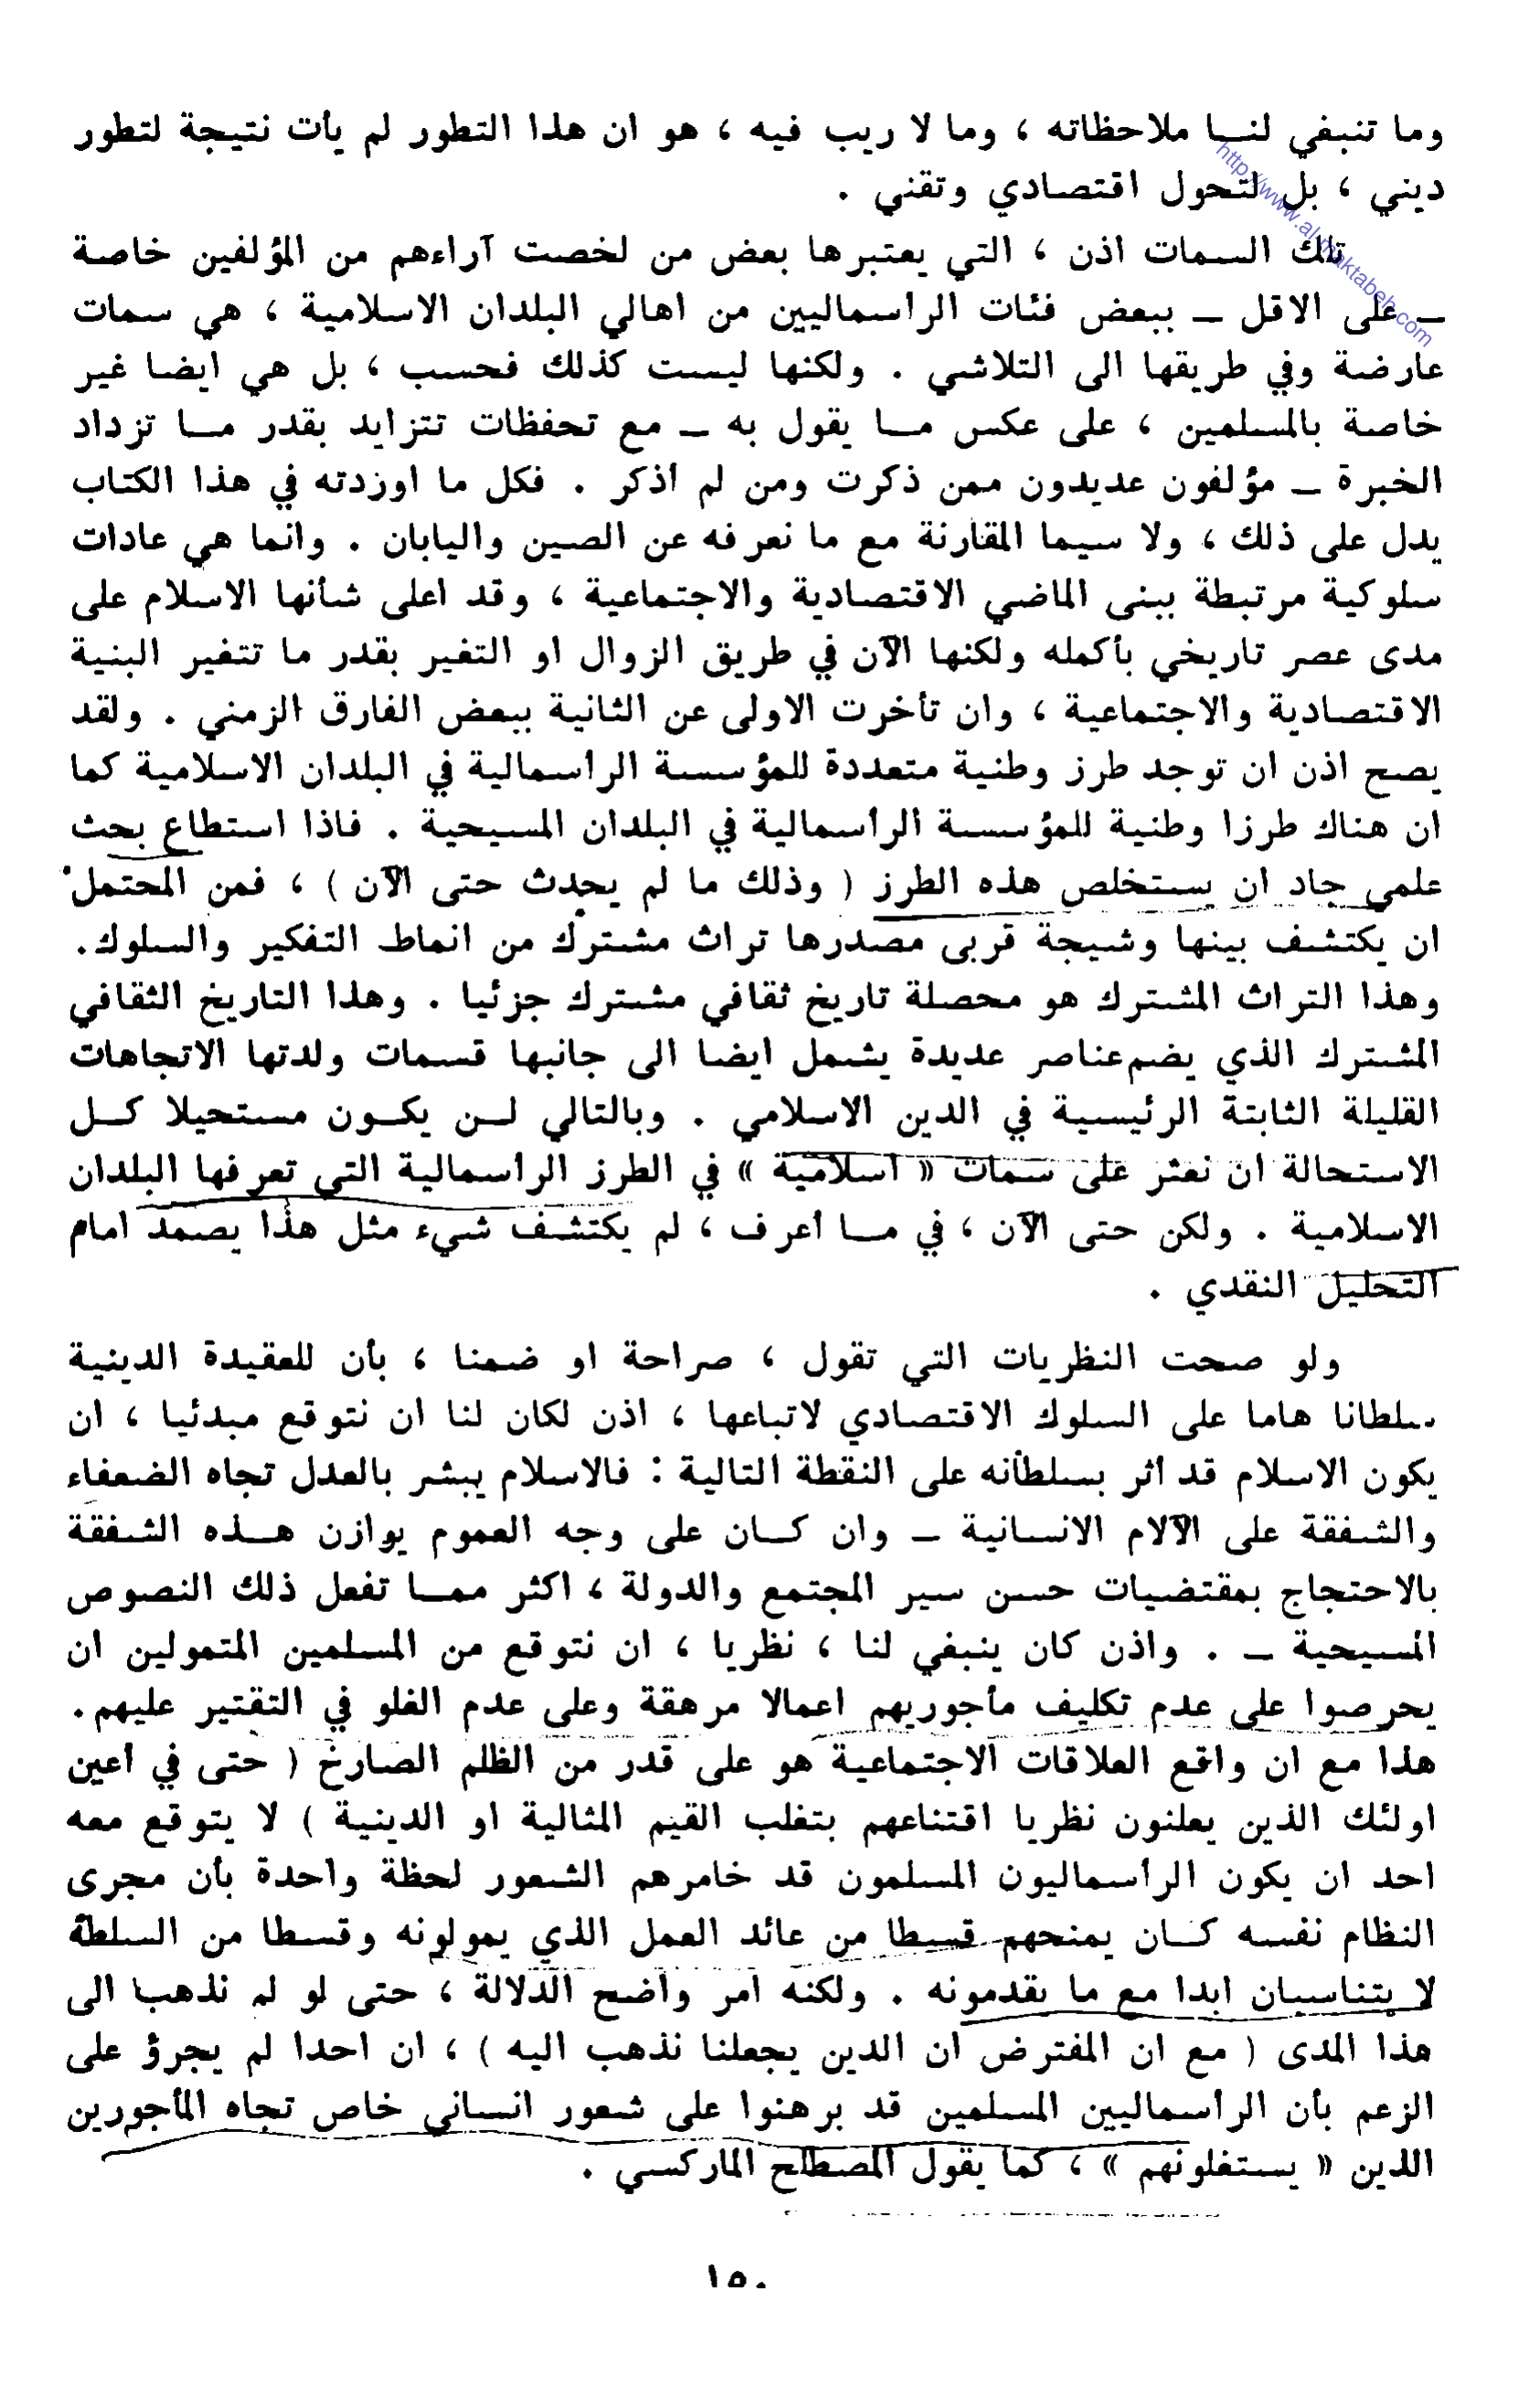 وما تنبغي لنا ملاحظاته ، وما لا ريب فيه ، هو ان هذا التطور لم يأت نتيجة لتطور
ديني ، بل لتحول اقتصادي وتقني .
http://www.al-maktabeh.com
تلك السمات اذن ، التي يعتبرها بعض من لخصت آراءهم من المؤلفين خاصة
ـ على الاقل ـ ببعض فئات الرأسماليين من اهالي البلدان الاسلامية ، هي سمات
عارضة وفي طريقها الى التلاشي . ولكنها ليست كذلك فحسب ، بل هي ايضا غير
خاصة بالمسلمين ، على عكس ما يقول به ـ مع تحفظات تتزايد بقدر ما تزداد
الخبرة ـ مؤلفون عديدون ممن ذكرت ومن لم أذكر . فكل ما اوردته في هذا الكتاب
يدل على ذلك ، ولا سيما المقارنة مع ما نعرفه عن الصين واليابان . وانما هي عادات
سلوكية مرتبطة ببنى الماضي الاقتصادية والاجتماعية ، وقد اعلى شأنها الاسلام على
مدى عصر تاريخي بأكمله ولكنها الآن في طريق الزوال او التغير بقدر ما تتغير البنية
الاقتصادية والاجتماعية ، وان تأخرت الاولى عن الثانية ببعض الفارق الزمني . ولقد
يصح اذن ان توجد طرز وطنية متعددة للمؤسسة الرأسمالية في البلدان الاسلامية كما
ان هناك طرزا وطنية للمؤسسة الرأسمالية في البلدان المسيحية . فاذا استطاع بحث
علمي جاد ان يستخلص هذه الطرز ( وذلك ما لم يحدث حتى الآن ) ، فمن المحتمل
ان يكتشف بينها وشيجة قربى مصدرها تراث مشترك من انماط التفكير والسلوك.
وهذا التراث المشترك هو محصلة تاريخ ثقافي مشترك جزئيا . وهذا التاريخ الثقافي
المشترك الذي يضم عناصر عديدة يشمل ايضا الى جانبها قسمات ولدتها الاتجاهات
القليلة الثابتة الرئيسية في الدين الاسلامي . وبالتالي لن يكون مستحيلا كل
الاستحالة ان نعثر على سمات « اسلامية » في الطرز الرأسمالية التي تعرفها البلدان
الاسلامية . ولكن حتى الآن ، في ما أعرف ، لم يكتشف شيء مثل هذا يصمد امام
التحليل النقدي .
ولو صحت النظريات التي تقول ، صراحة او ضمنا ، بأن للعقيدة الدينية
سلطانا هاما على السلوك الاقتصادي لاتباعها ، اذن لكان لنا ان نتوقع مبدئيا ، ان
يكون الاسلام قد اثر بسلطانه على النقطة التالية : فالاسلام يبشر بالعدل تجاه الضعفاء
والشفقة على الآلام الانسانية ـ وان كان على وجه العموم يوازن هذه الشفقة
بالاحتجاج بمقتضيات حسن سير المجتمع والدولة ، اكثر مما تفعل ذلك النصوص
المسيحية ـ . واذن كان ينبغي لنا ، نظريا ، ان نتوقع من المسلمين المتمولين ان
يحرصوا على عدم تكليف مأجوريهم اعمالا مرهقة وعلى عدم الغلو في التقتير عليهم.
هذا مع ان واقع العلاقات الاجتماعية هو على قدر من الظلم الصارخ ( حتى في أعين
اولئك الذين يعلنون نظريا اقتناعهم بتغلب القيم المثالية او الدينية ) لا يتوقع معه
احد ان يكون الرأسماليون المسلمون قد خامرهم الشعور لحظة واحدة بأن مجرى
النظام نفسه كان يمنحهم قسطا من عائد العمل الذي يمولونه وقسطا من السلطة
لا يتناسبان ابدا مع ما يقدمونه . ولكنه امر واضح الدلالة ، حتى لو لم نذهب الى
هذا المدى ( مع ان المفترض ان الدين يجعلنا نذهب اليه ) ، ان احدا لم يجرؤ على
الزعم بأن الرأسماليين المسلمين قد برهنوا على شعور انساني خاص تجاه المأجورين
الذين « يستغلونهم » ، كما يقول المصطلح الماركسي .
١٥٠